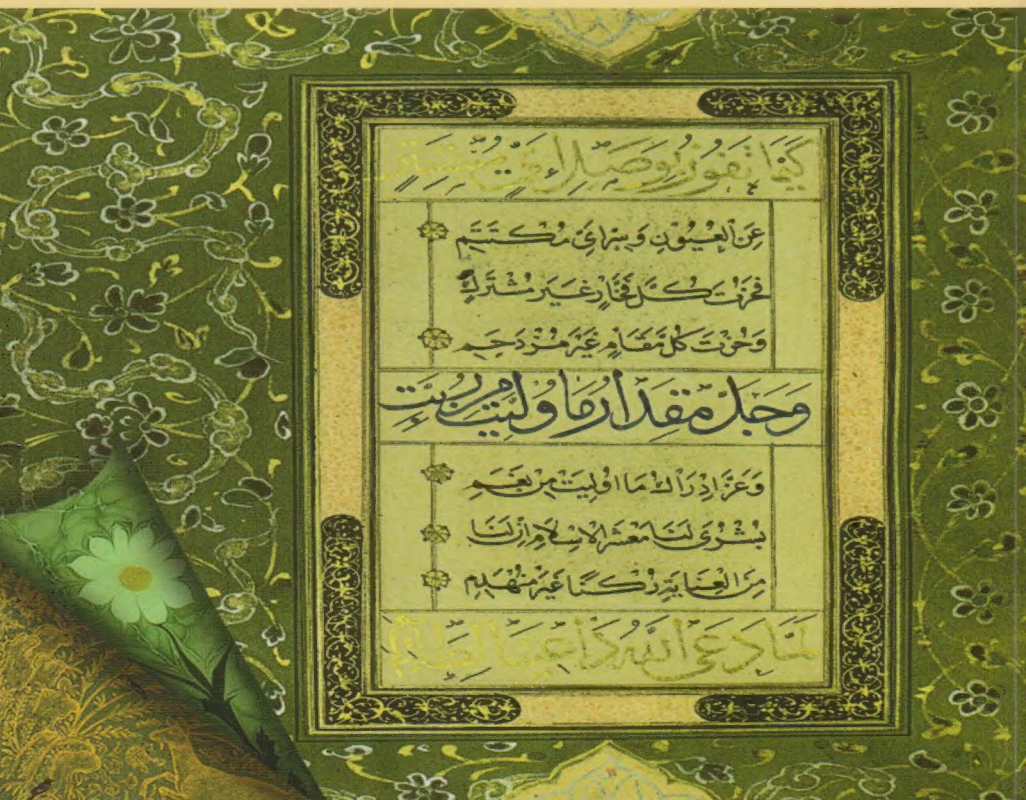 كَيْمَا تَفُوزَ بِوَصْلٍ أَيِّ مُسْتَتِرٍ
عَنِ الْعُيُونِ وَسِرٍّ أَيِّ مُكْتَتَمِ
فَحُزْتَ كُلَّ فَخَارٍ غَيْرَ مُشْتَرَكٍ
وَجُزْتَ كُلَّ مَقَامٍ غَيْرَ مُزْدَحَمِ
وَجَلَّ مِقْدَارُ مَا وُلِّيتَ مِنْ رُتَبٍ
وَعَزَّ إِدْرَاكُ مَا أُولِيتَ مِنْ نِعَمِ
بُشْرَى لَنَا مَعْشَرَ الْإِسْلَامِ إِنَّ لَنَا
مِنَ الْعِنَايَةِ رُكْنًا غَيْرَ مُنْهَدِمِ
لَمَّا دَعَى اللَّهُ دَاعِينَا